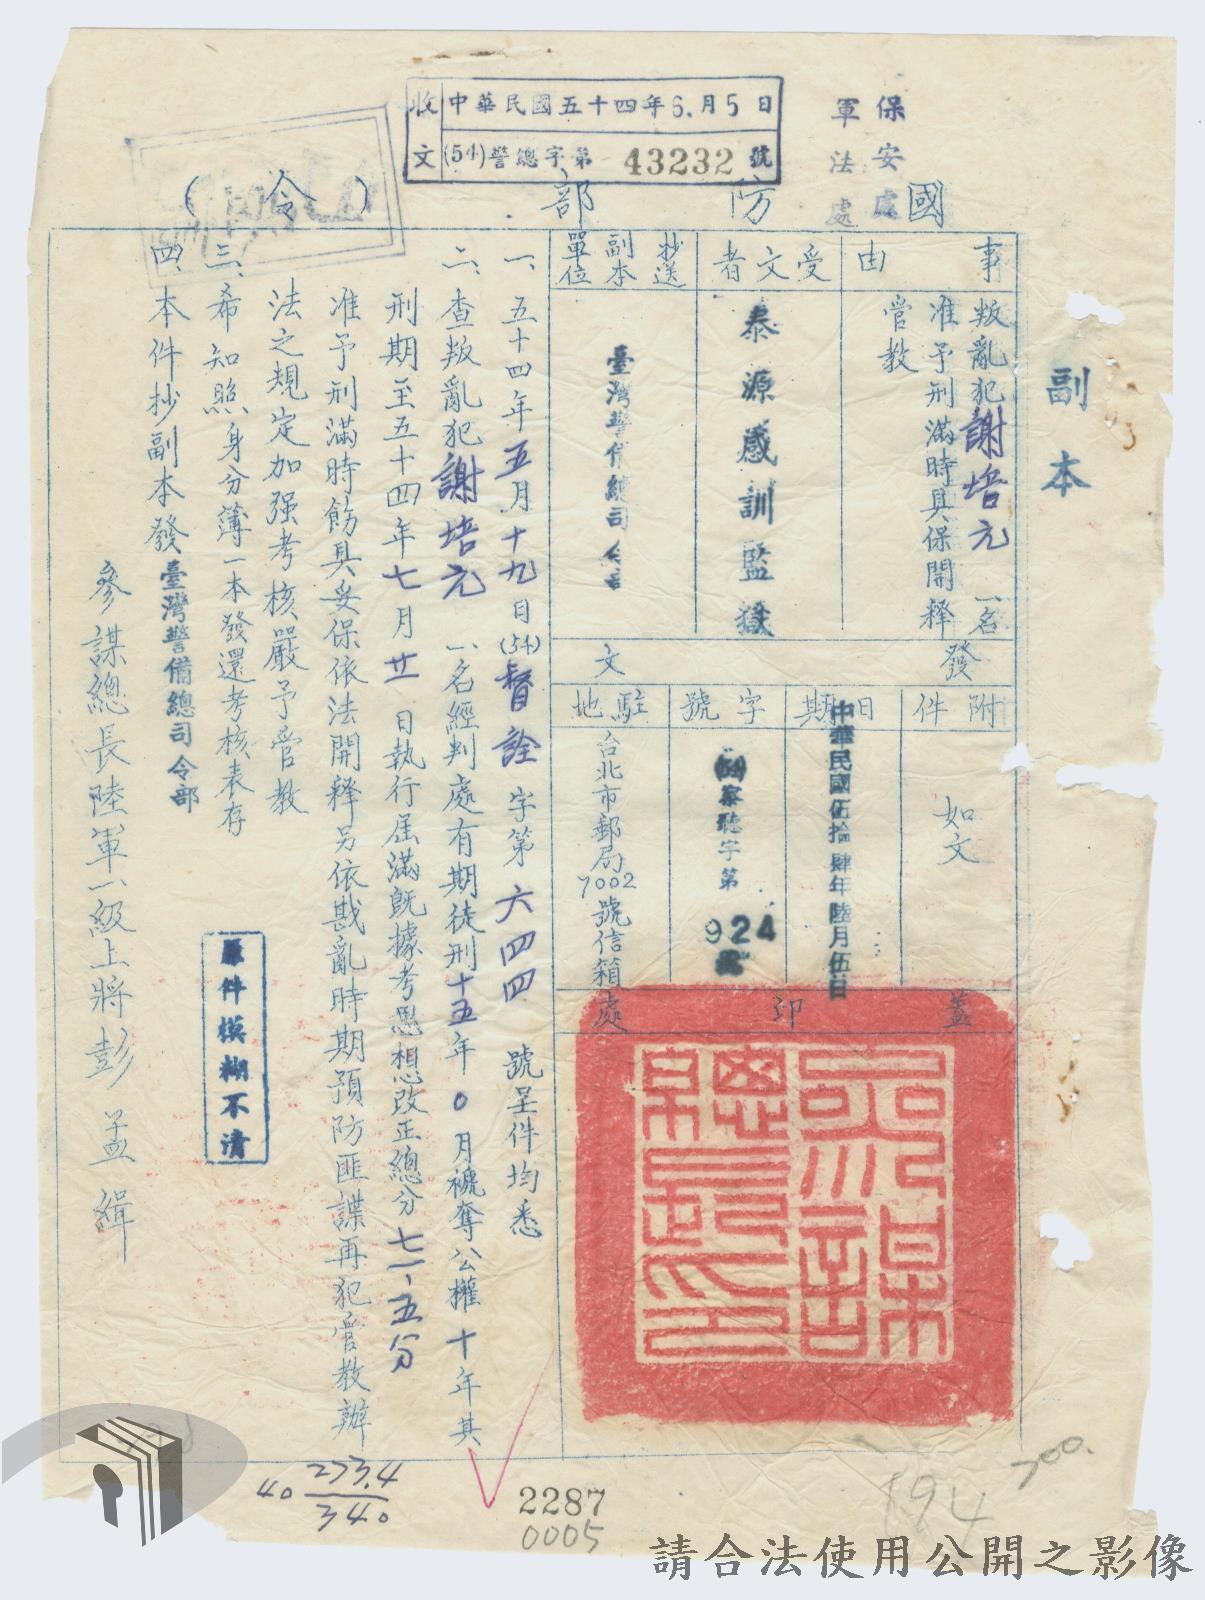 副本
保安處
軍法處
收文
中華民國五十四年6.月5日
(54)警總字第 43232 號
國防部(令)
事由
叛亂犯謝培元一名
准予刑滿時具保開釋
管教
受文者
泰源感訓監獄
抄送副本單位
臺灣警備總司令部
發文
附件
如文
日期
中華民國伍拾肆年陸月伍日
字號
(54)家聽字第
924
號
駐地
台北市郵局7002號信箱
蓋印處
參謀總長之印
一、五十四年五月十九日(54)督詮字第六四四號呈件均悉
二、查叛亂犯謝培元一名經判處有期徒刑十五年0月褫奪公權十年其
刑期至五十四年七月廿一日執行屆滿旣據考思想改正總分七一、五分
准予刑滿時飭具妥保依法開釋另依戡亂時期預防匪諜再犯管教辦
法之規定加强考核嚴予管教
三、希知照身分簿一本發還考核表存
四、本件抄副本發臺灣警備總司令部
參謀總長陸軍一級上將彭孟緝
原件模糊不清
40
273.4
340
2287
0005
194
700.
請合法使用公開之影像